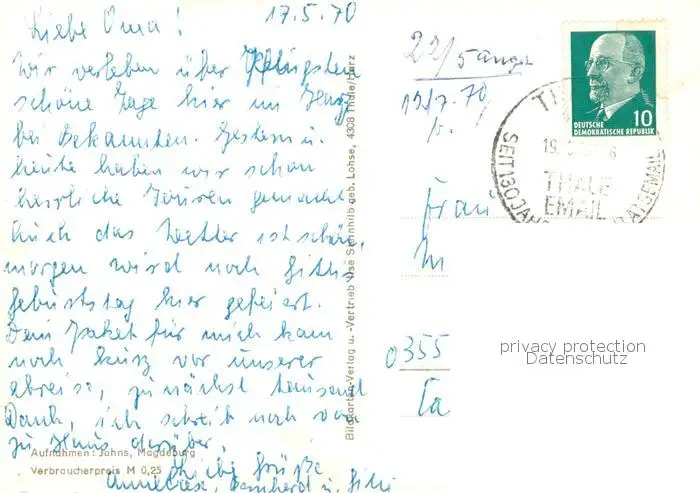 17.5.70
Liebe Oma!
Wir verleben über Pfingsten
schöne Tage hier im Harz
bei Bekannten. Gestern u.
heute haben wir schon
herrliche Touren gemacht
Auch das Wetter ist schön,
morgen wird noch Gittis
Geburtstag hier gefeiert.
Dein Paket für mich kam
noch kurz vor unserer
abreise, zunächst tausend
Dank, ich schreib noch von
zu Haus darüber,
Liebe Grüße
Anneliese, u. Gitti
Aufnahmen: Jahns, Magdeburg
Verbraucherpreis M 0,25
Bildkarten-Verlag u. -Vertrieb Ilse Sennhilb geb. Lohse, 4308 Thale/Harz
22/
12/7.70
Frau
0355
10
DEUTSCHE
DEMOKRATISCHE REPUBLIK
19
THALE
EMAIL
SEIT 130
privacy protection
Datenschutz